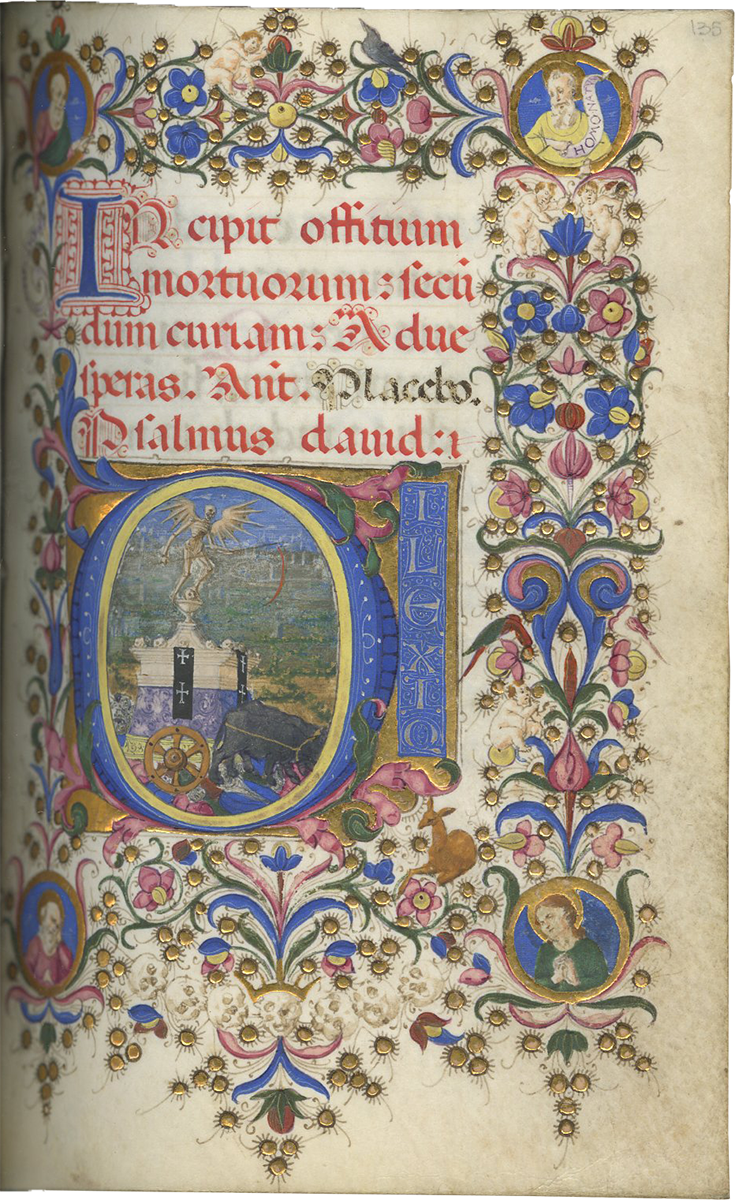 135
HOMO NAT
INcipit offitium
mortuorum: secū
dum curiam: Ad ue
speras. Ant̄. Placebo.
Psalmus dauid:
DILEXI